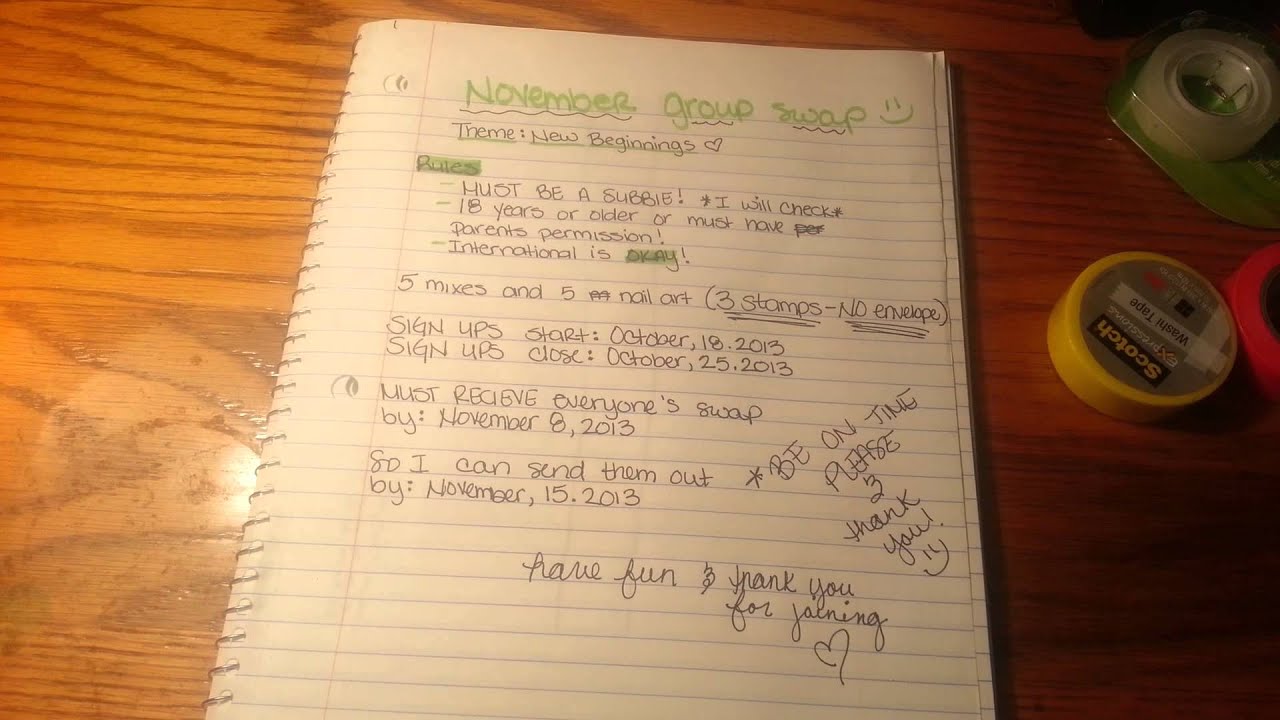 November group swap :)
Theme: New Beginnings ♡
Rules
- MUST BE A SUBBIE! *I will check*
- 18 years or older or must have
parents permission!
- International is OKAY!
5 mixes and 5 nail art (3 stamps - NO envelope)
SIGN UPS start: October, 18. 2013
SIGN UPS close: October, 25. 2013
MUST RECIEVE everyone's swap
by: November 8, 2013
So I can send them out
by: November, 15. 2013
* BE ON TIME
PLEASE
&
thank
you!
:)
have fun & thank you
for joining
♡
Scotch
expressions
Washi Tape